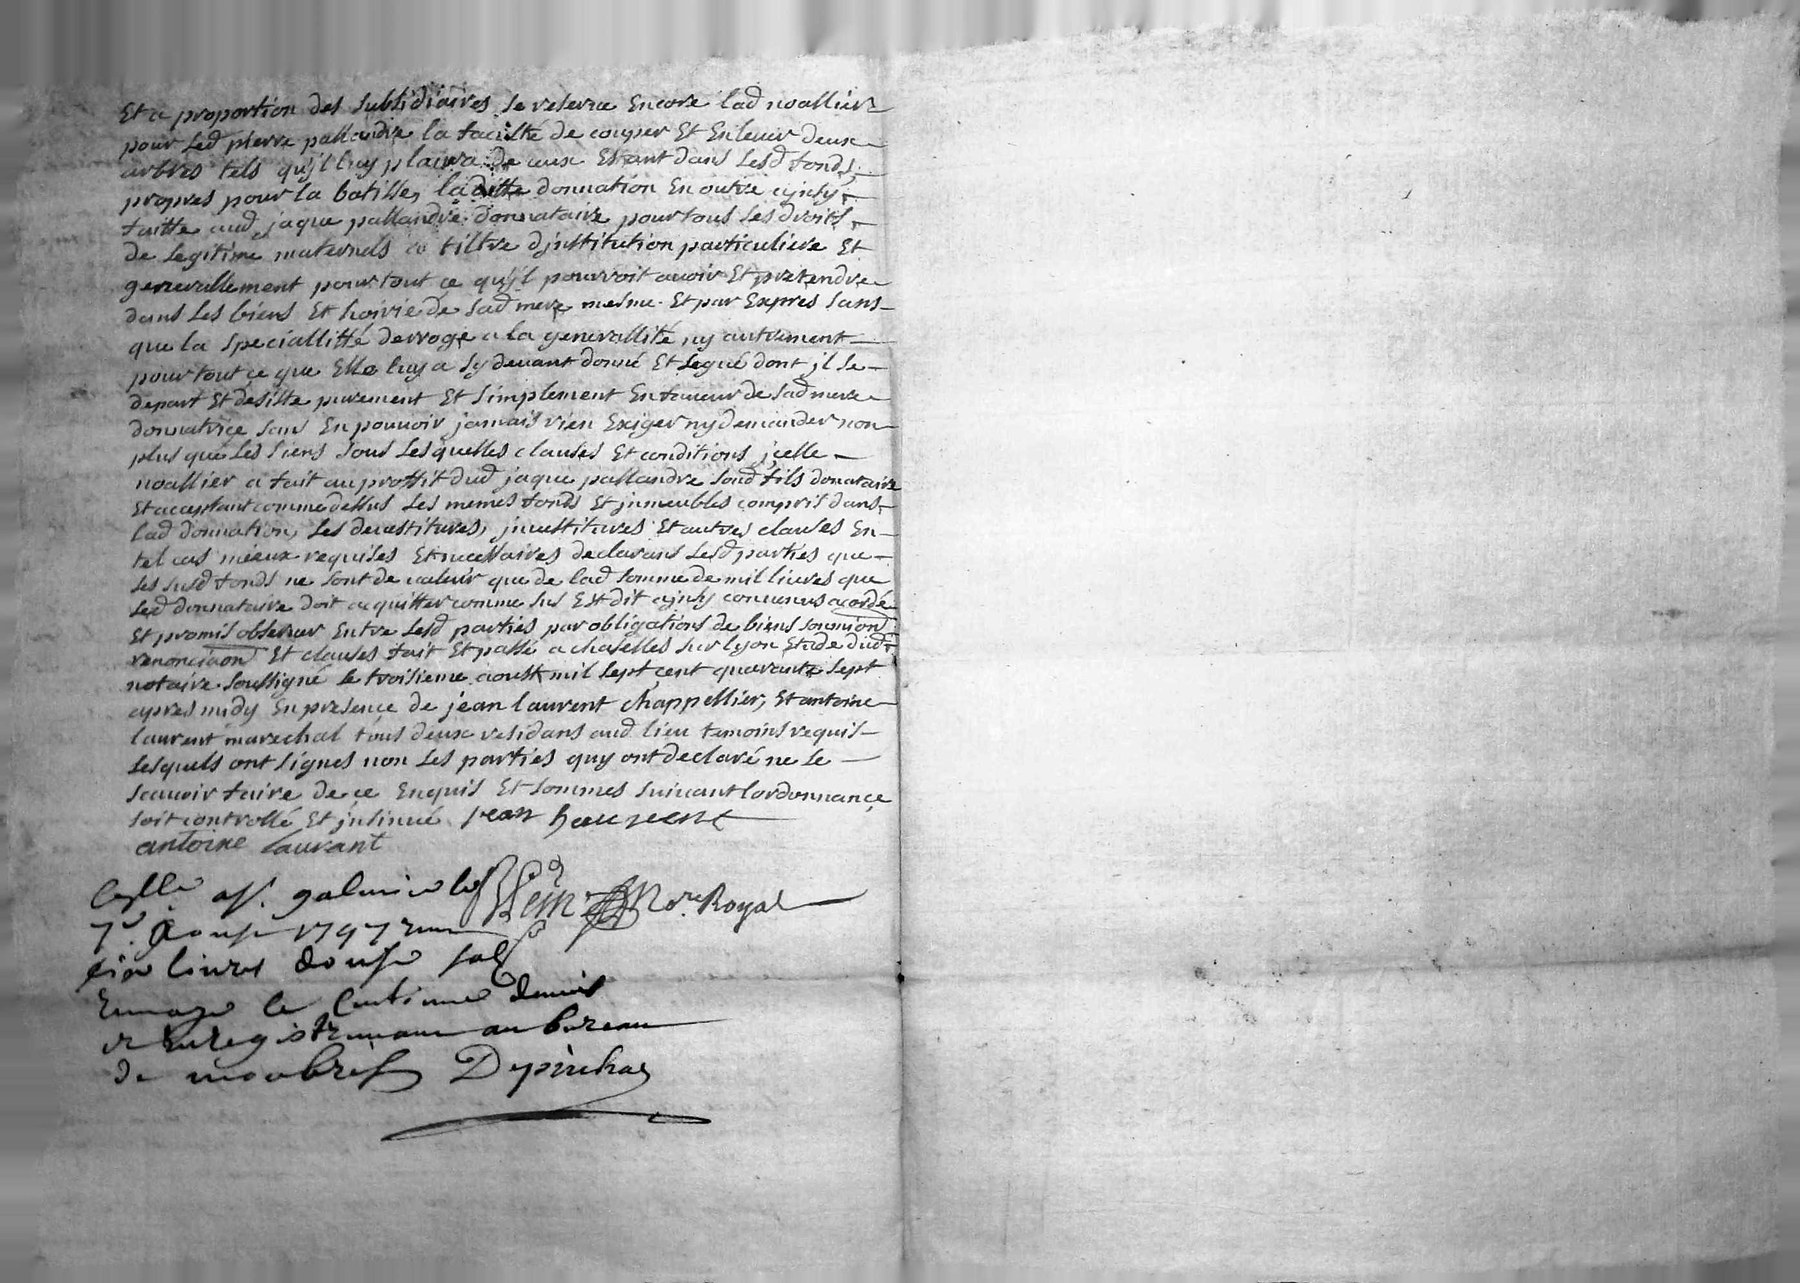 Et a proportion des subsidiaires, se reserve Encore lad noallier
pour led pierre pallandre la faculté de couper Et Enlever deux
arbres tels qu'jl luy plaira de ceux Estant dans lesd fonds,
propres pour la batisse, laditte donnation En outre ajnsy
faitte aud jaque pallandre donnataire pour tous les droits
de legitime maternels a tiltre djnstitution particuliere Et
generallement pour tout ce qu'jl pourroit avoir Et pretendre
dans les biens Et hoirie de sad mere mesme Et par Expres sans
que la speciallitté derroge a la generallité ny autrement
pour tout ce que Elle luy a sy devant donné Et legué dont jl se
depart Et desiste purement Et simplement En faveur de sad mere
donnatrice sans En pouvoir jamais rien Exiger ny demander non
plus que les siens sous lesquelles clauses Et conditions jcelle
noallier a fait au proffit dud jaque pallandre soud fils donataire
Et acceptant comme dessus les memes fonds Et jmmeubles compris dans
lad donnation, les devestitures, jnvestitures Et autres clauses En
tel cas mieux requises Et necessaires declarans lesd parties que
les susd fonds ne sont de valeur que de lad somme de mil livres que
led donnataire doit acquitter comme sus Est dit ajnsy convenus acordé
Et promis observer Entre lesd parties par obligations de biens soumion
renonciaon Et clauses fait Et passé a chaselles sur lyon Etude dud
notaire soussigné le troisieme aoust mil sept cent quarante sept
apres midy En presence de jean laurent chappellier, Et antoine
laurent marechal tous deux residans aud lieu temoins requis
lesquels ont signes non les parties quy ont declaré ne le
scavoir faire de ce Enquis Et sommes suivant lordonnance
soit controllé Et jnsinué jean
antoine Laurant
galmier le Nore Royal
7e Aoust 1747
livres douse sols
le centieme denier
et Enregistrement au bureau
de